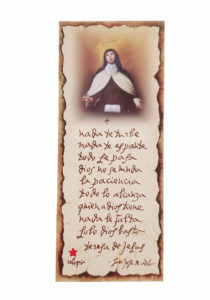 nada te turbe
nada te espante
todo se pasa
dios no se muda
la paciencia
todo lo alcanza
quien a dios tiene
nada le falta
solo dios basta
teresa de jesus